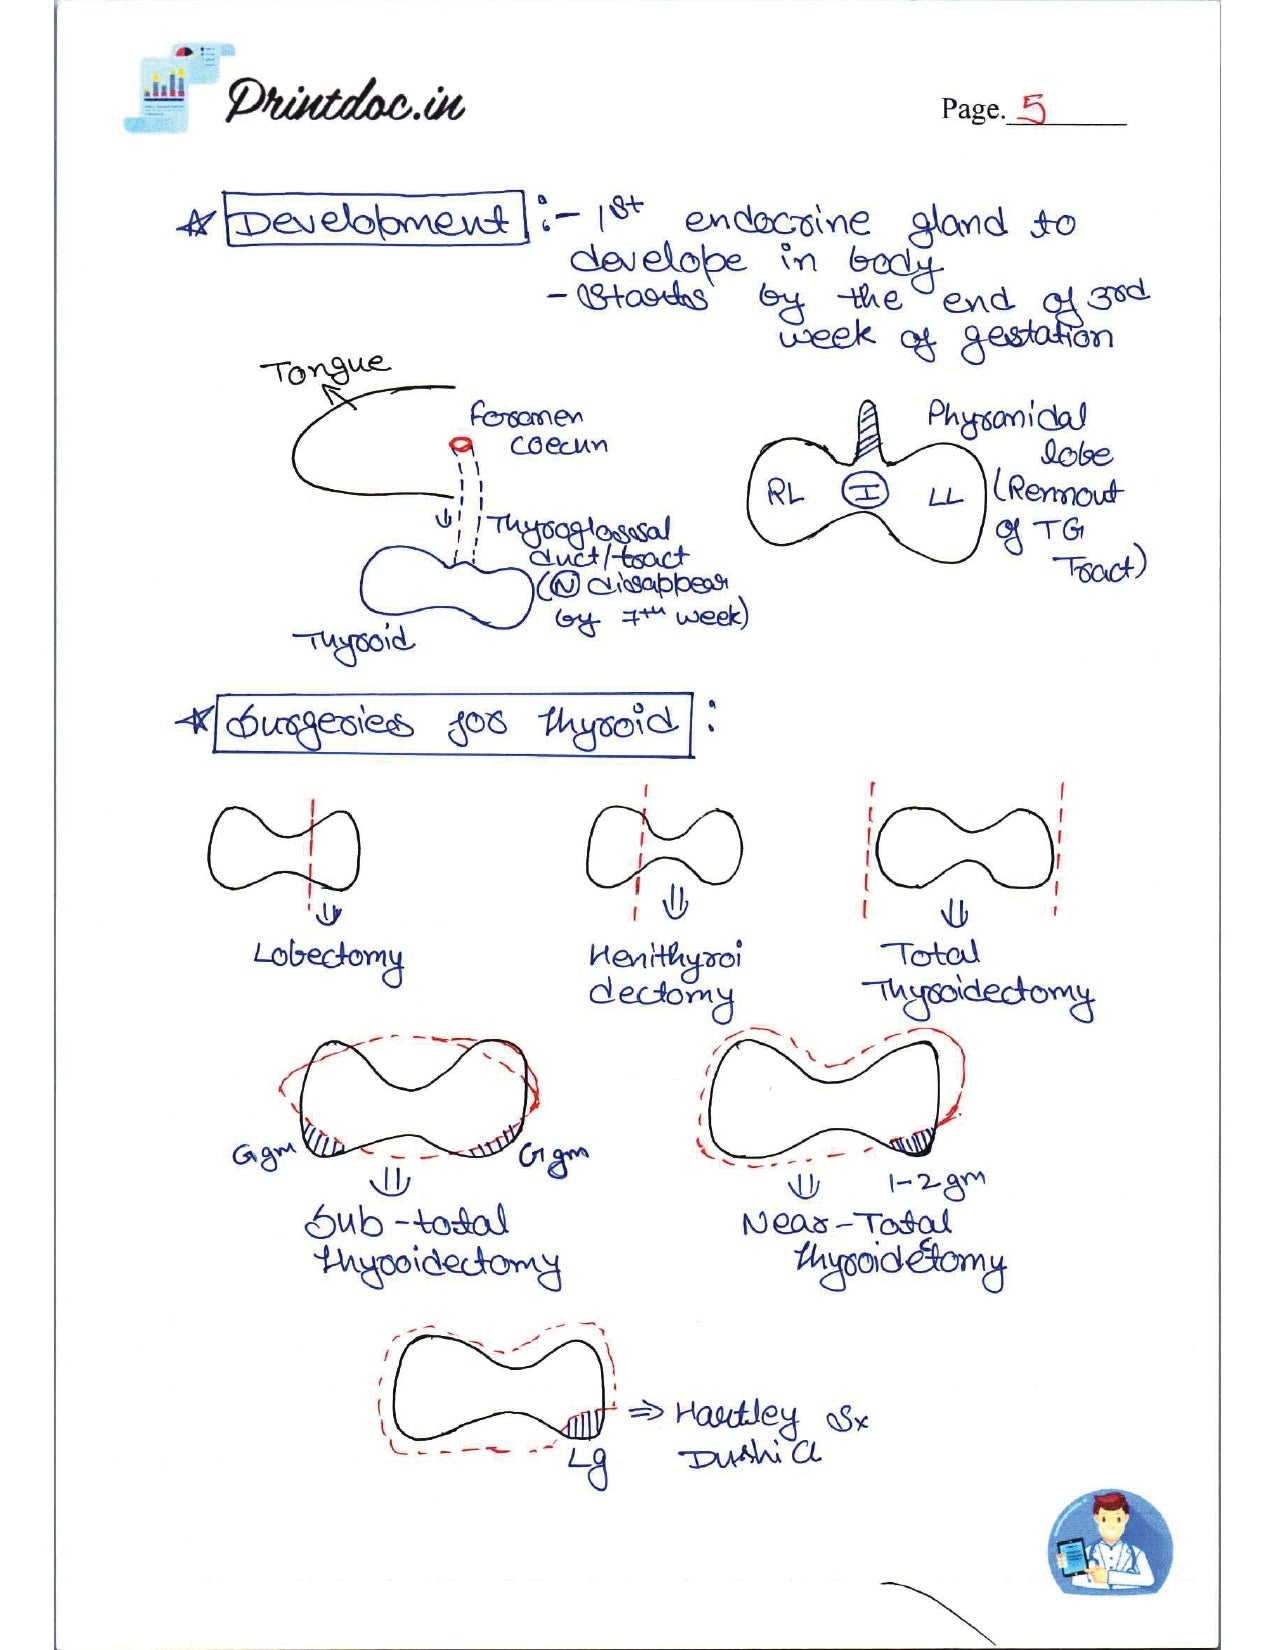 Printdoc.in
Page. 5
Development :- 1st endocrine gland to
develope in body
- Starts by the end of 3rd
week of gestation
Tongue
Foramen
coecun
Thyroglossal
duct/tract
(N disappear
by 7th week)
Thyroid
Physamidal
lobe
(Remnout
of TG
Tract)
RL
I
LL
Surgeries for thyroid :
Lobectomy
Hemithyroi
dectomy
Total
Thyroidectomy
gm
gm
Sub-total
thyroidectomy
1-2 gm
Near-Total
thyroidectomy
Lg
⇒ Hartley Sx